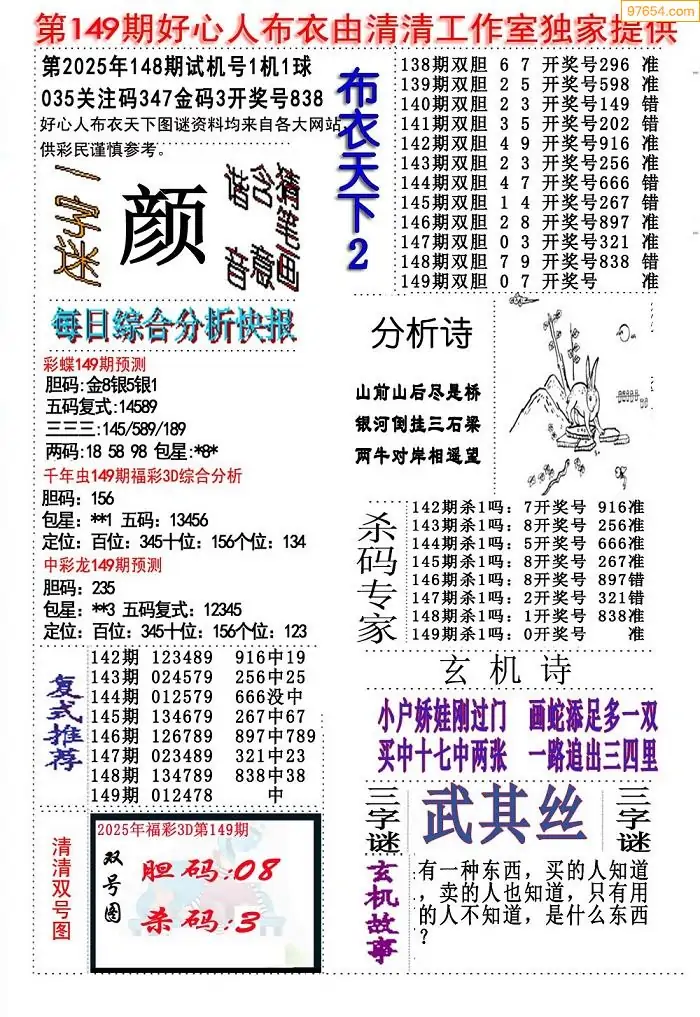 97654.com
第149期好心人布衣由清清工作室独家提供
第2025年148期试机号1机1球
035关注码347金码3开奖号838
好心人布衣天下图谜资料均来自各大网站,
供彩民谨慎参考。
一字迷
颜
猜笔画
含意
谐音
每日综合分析快报
彩蝶149期预测
胆码:金8银5银1
五码复式:14589
三三三:145/589/189
两码:18 58 98 包星:*8*
千年虫149期福彩3D综合分析
胆码：156
包星：**1 五码：13456
定位：百位：345十位：156个位：134
中彩龙149期预测
胆码：235
包星：**3 五码复式：12345
定位：百位：345十位：156个位：123
复式推荐
142期 123489 916中19
143期 024579 256中25
144期 012579 666没中
145期 134679 267中67
146期 126789 897中789
147期 023489 321中23
148期 134789 838中38
149期 012478 中
清清双号图
2025年福彩3D第149期
双号图
胆码:08
杀码:3
布衣天下2
138期双胆 6 7 开奖号296 准
139期双胆 2 5 开奖号598 准
140期双胆 2 3 开奖号149 错
141期双胆 3 5 开奖号202 错
142期双胆 4 9 开奖号916 准
143期双胆 2 3 开奖号256 准
144期双胆 4 7 开奖号666 错
145期双胆 1 4 开奖号267 错
146期双胆 2 8 开奖号897 准
147期双胆 0 3 开奖号321 准
148期双胆 7 9 开奖号838 错
149期双胆 0 7 开奖号 准
分析诗
山前山后尽是桥
银河倒挂三石梁
两牛对岸相遥望
杀码专家
142期杀1吗：7开奖号 916准
143期杀1吗：8开奖号 256准
144期杀1吗：5开奖号 666准
145期杀1吗：8开奖号 267准
146期杀1吗：8开奖号 897错
147期杀1吗：2开奖号 321错
148期杀1吗：1开奖号 838准
149期杀1吗：0开奖号 准
玄机诗
小户娇娃刚过门 画蛇添足多一双
买中十七中两张 一路追出三四里
三字谜
武其丝
三字谜
玄机故事
有一种东西，买的人知道
，卖的人也知道，只有用
的人不知道，是什么东西
？